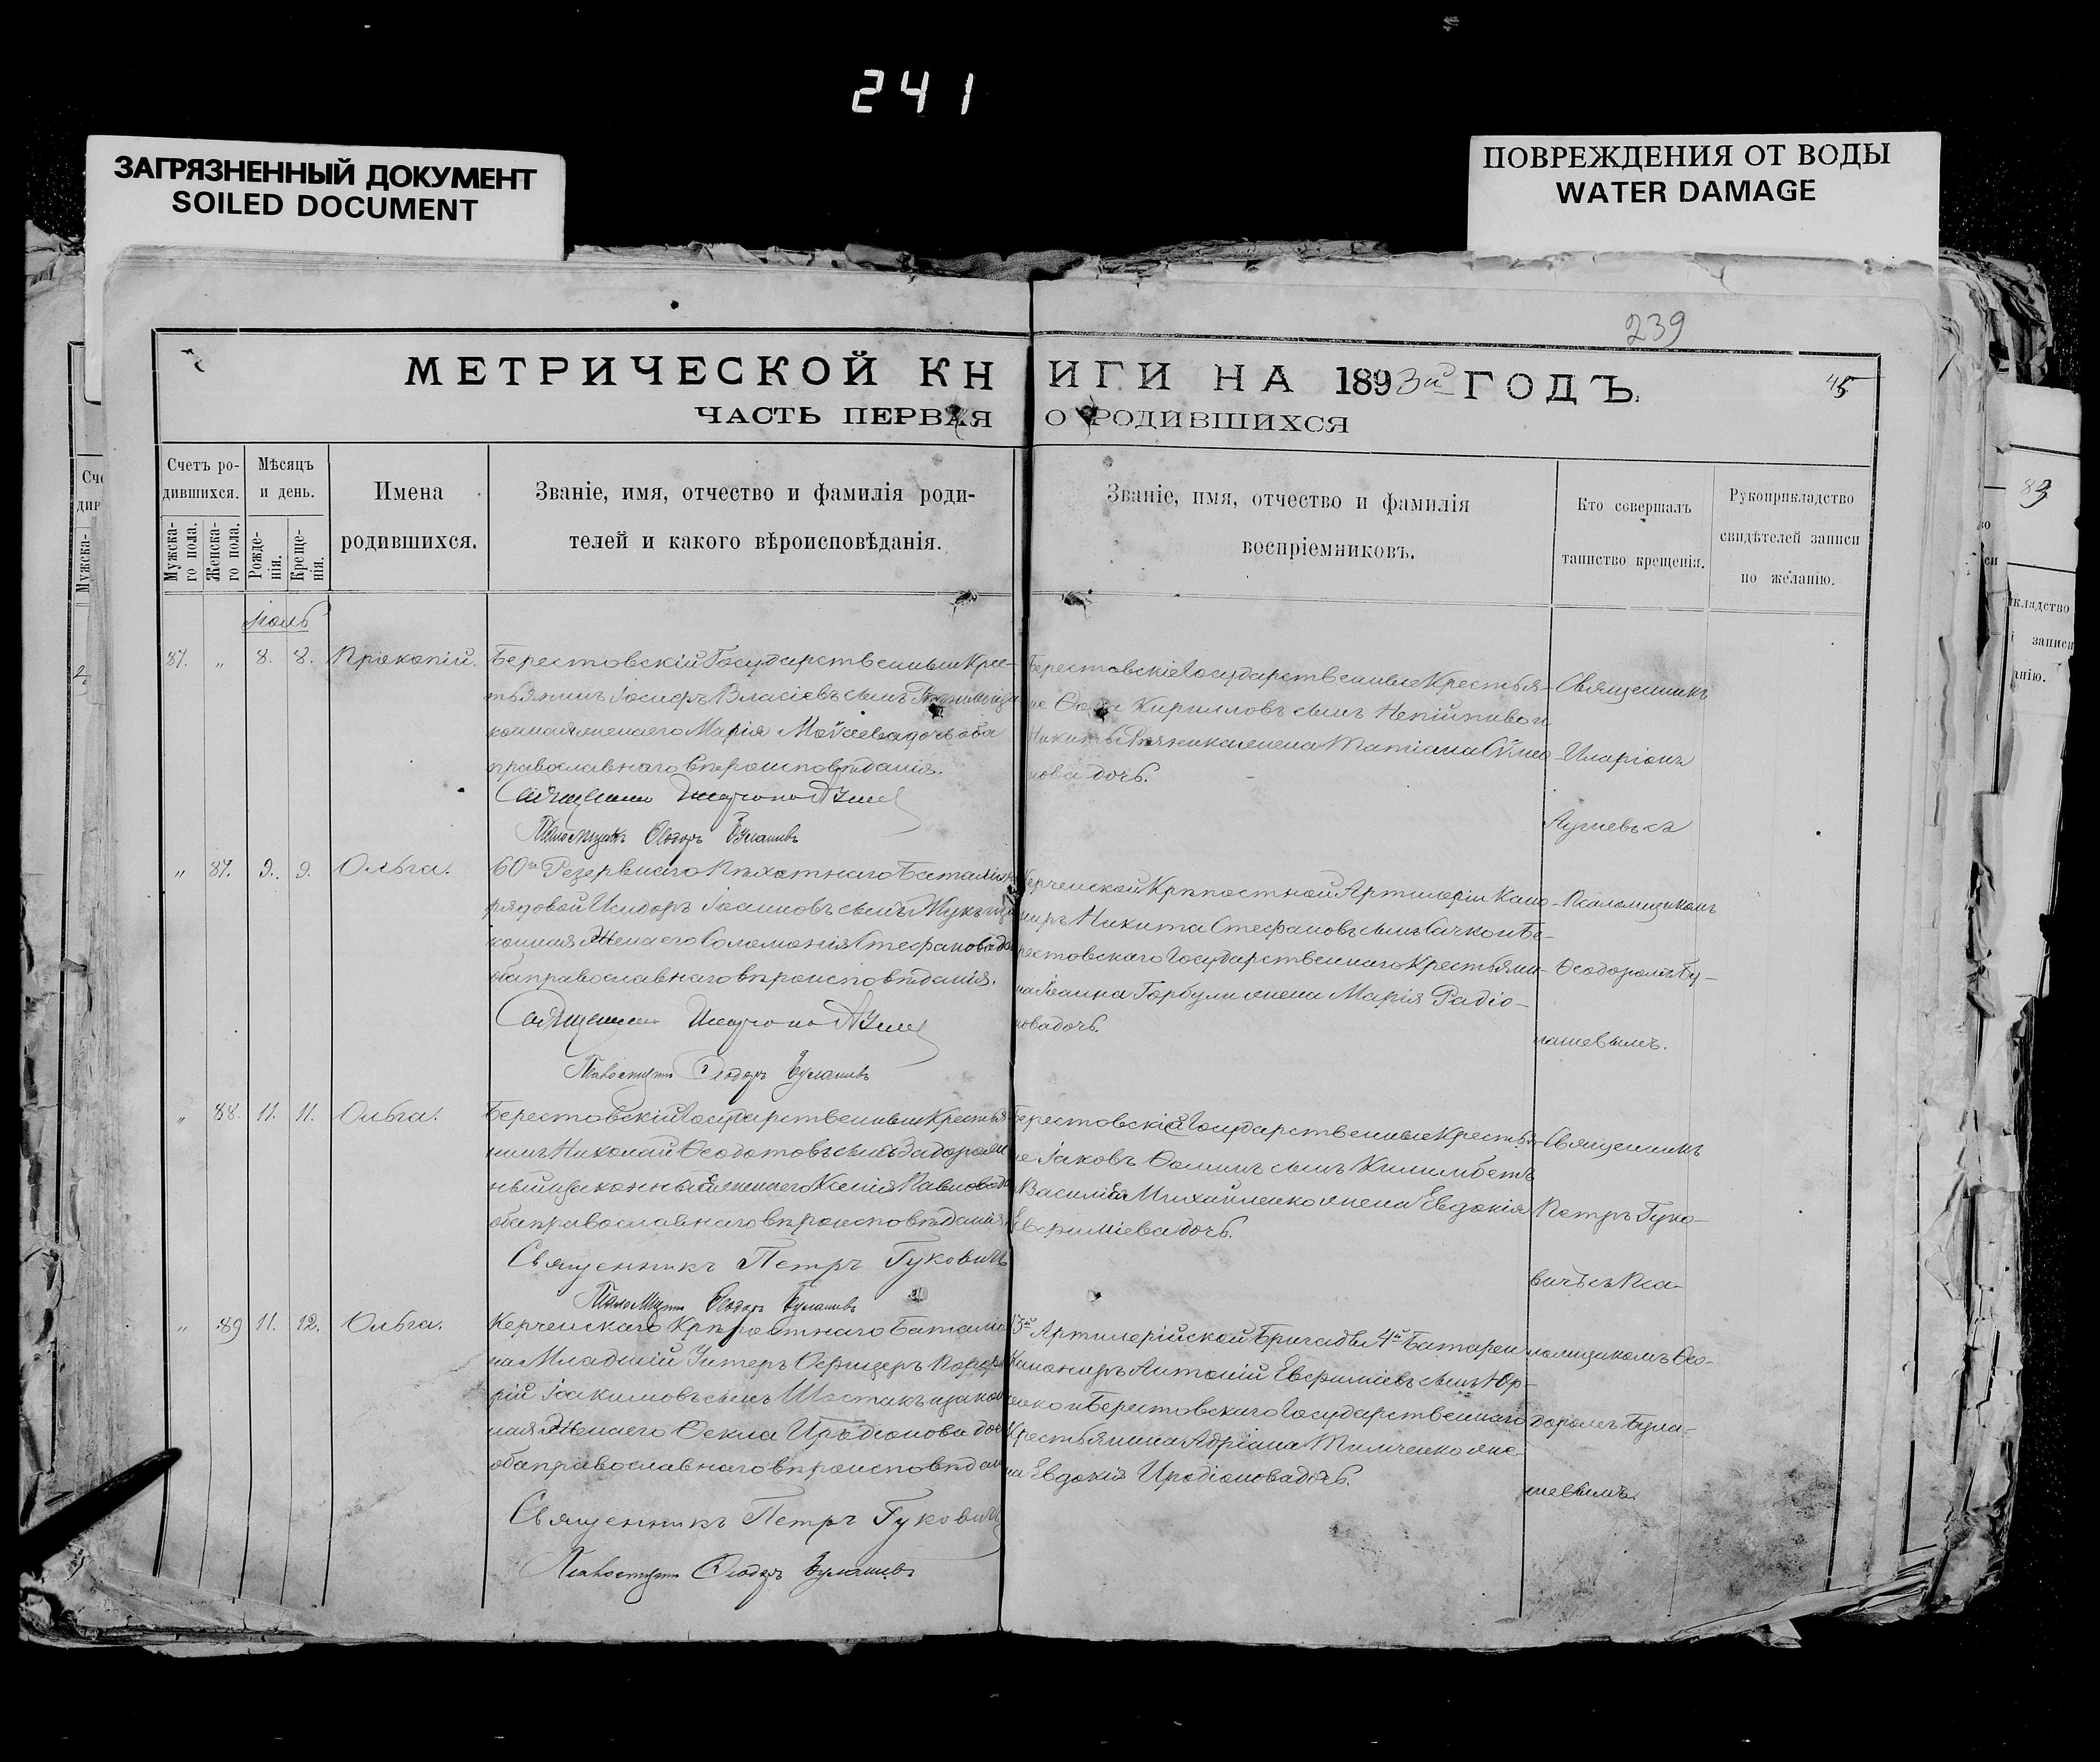 241
ЗАГРЯЗНЕННЫЙ ДОКУМЕНТ
SOILED DOCUMENT
ПОВРЕЖДЕНИЯ ОТ ВОДЫ
WATER DAMAGE
239
МЕТРИЧЕСКОЙ КНИГИ НА 1893й ГОДЪ.
45
ЧАСТЬ ПЕРВАЯ О РОДИВШИХСЯ
Счетъ родившихся.
Мужскаго пола.
Женскаго пола.
Мѣсяцъ и день.
Рожденія.
Крещенія.
Имена родившихся.
Званіе, имя, отчество и фамилія родителей и какого вѣроисповѣданія.
Званіе, имя, отчество и фамилія воспріемниковъ.
Кто совершалъ таинство крещенія.
Рукоприкладство свидѣтелей записи по желанію.
Іюль
87. „ 8. 8. Прокопій.
Берестовскій Государственный Крес-
тьянинъ Іосифъ Власіевъ сынъ
конная жена его Марія Моѵсіева дочь оба
православнаго вѣроисповѣданія.
Священникъ
Псаломщикъ Ѳеодоръ Булашевъ
Берестовскіе Государственные Крестья-
не Ѳома Кирилловъ сынъ Непійпиво и
Никиты жена Татіана
нова дочь.
Священникъ
Иларіонъ
„ 87. 9. 9. Ольга.
60го Резервнаго Пѣхотнаго Баталіона
рядовой Исидоръ Іоанновъ сынъ Жукъ и за
конная жена его Соломонія Стефанова до
оба православнаго вѣроисповѣданія.
Священникъ
Псаломщикъ Ѳеодоръ Булашевъ
Керченской Крѣпостной Артилеріи Кано-
ниръ Никита Стефановъ сынъ Сачко и Бе-
рестовскаго Государственнаго Крестьяни-
на Іоанна Горбули жена Марія Радіо-
нова дочь.
Псаломщикомъ
Ѳеодоромъ Бу-
лашевымъ.
„ 88. 11. 11. Ольга.
Берестовскій Государственный Крестья
нинъ Николай Ѳеодотовъ сынъ Задорож
ный и законная жена его Ксенія Павлова до
оба православнаго вѣроисповѣданія.
Священникъ Петръ Гуковичъ
Псаломщикъ Ѳеодоръ Булашевъ
Берестовскіе Государственные Крестья-
не Іаковъ Ѳоминъ сынъ
Василія Михайленко жена Евдокія
Евфиміева дочь.
Священникъ
Петръ Гуко-
вичъ съ Пса-
„ 89 11. 12. Ольга.
Керченскаго Крѣпостнаго Баталіо
на Младшій Унтеръ Офицеръ
рій Іоакимовъ сынъ Шостакъ и закон
ная жена его Ѳекла Иродіонова доч
оба православнаго вѣроисповѣдан
Священникъ Петръ Гуковичъ
Псаломщикъ Ѳеодоръ Булашевъ
13й Артилерійской Бригады 4й Батареи
Канониръ Антоній Евфиміевъ сынъ Юр-
ченко и Берестовскаго Государственнаго
Крестьянина Адріана Тимченко же
на Евдокія Иродіонова дочь.
ломщикомъ Ѳео-
доромъ Була-
шевымъ.